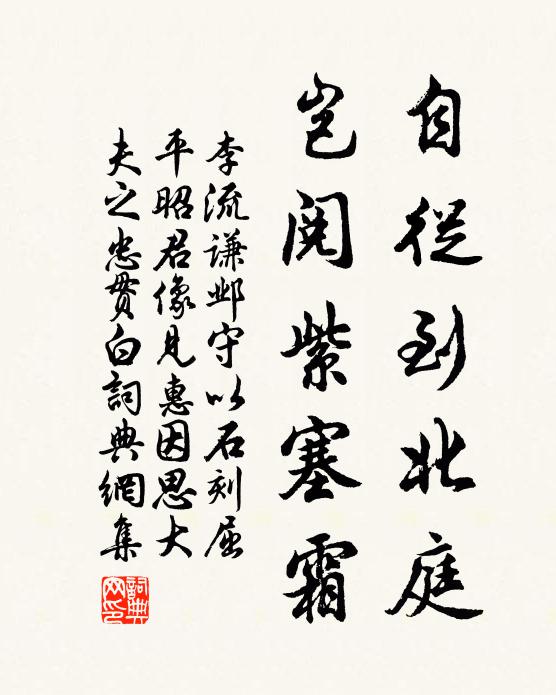 自從到北庭
豈閱紫塞霜
李流謙邺守以石刻屈
平昭君像見惠因思大
夫之忠貫白詞典網集
詞典網印